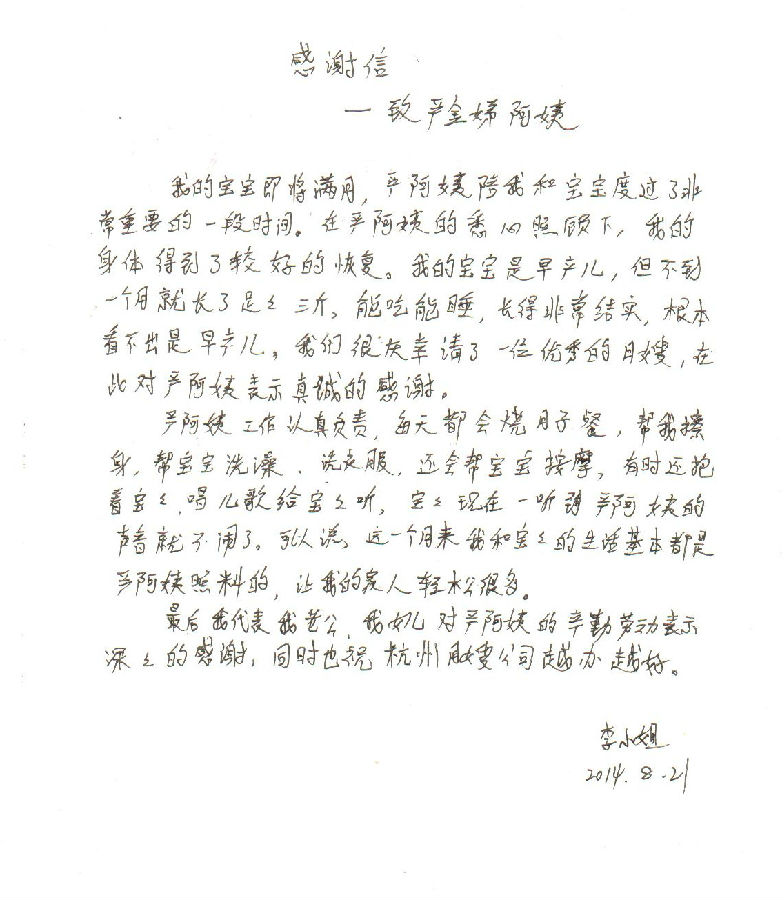 感谢信
一致严金娣阿姨
我的宝宝即将满月，严阿姨陪我和宝宝度过了非
常重要的一段时间。在严阿姨的悉心照顾下，我的
身体得到了较好的恢复。我的宝宝是早产儿，但不到
一个月就长了足々三斤，能吃能睡，长得非常结实，根本
看不出是早产儿。我们很庆幸请了一位优秀的月嫂，在
此对严阿姨表示真诚的感谢。
严阿姨工作认真负责，每天都会烧月子餐，帮我擦
身，帮宝宝洗澡、洗衣服，还会帮宝宝按摩，有时还抱
着宝々唱儿歌给宝々听，宝々现在一听到严阿姨的
声音就不闹了。可以说，这一个月来我和宝々的生活基本都是
严阿姨照料的，让我的家人轻松很多。
最后我代表我老公、我女儿对严阿姨的辛勤劳动表示
深々的感谢，同时也祝杭州月嫂公司越办越好。
李小姐
2014.8.21